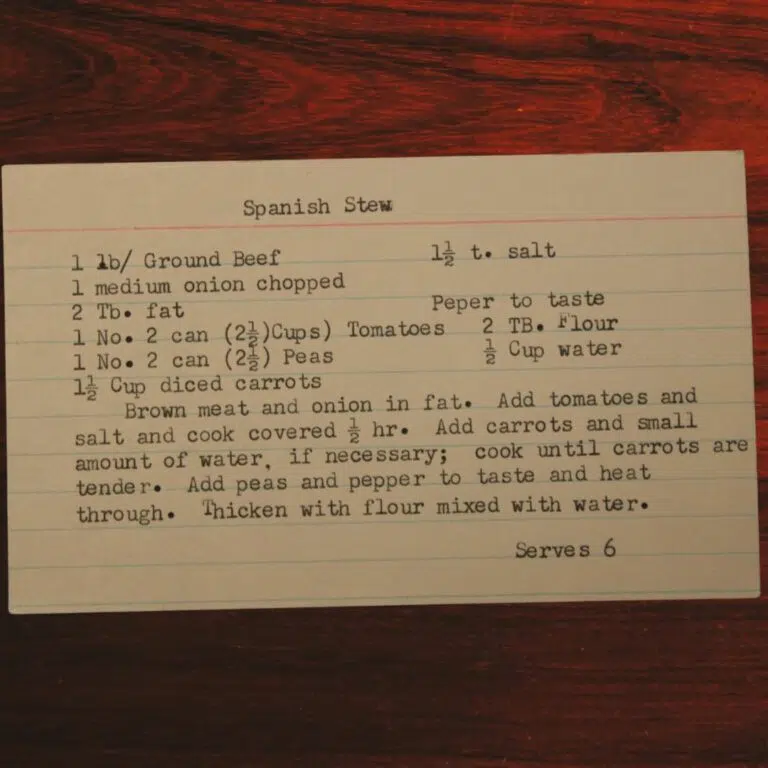 Spanish Stew
1 lb/ Ground Beef 1½ t. salt
1 medium onion chopped
2 Tb. fat Peper to taste
1 No. 2 can (2½)Cups) Tomatoes 2 TB. Flour
1 No. 2 can (2½) Peas ½ Cup water
1½ Cup diced carrots
Brown meat and onion in fat. Add tomatoes and
salt and cook covered ½ hr. Add carrots and small
amount of water, if necessary; cook until carrots are
tender. Add peas and pepper to taste and heat
through. Thicken with flour mixed with water.
Serves 6